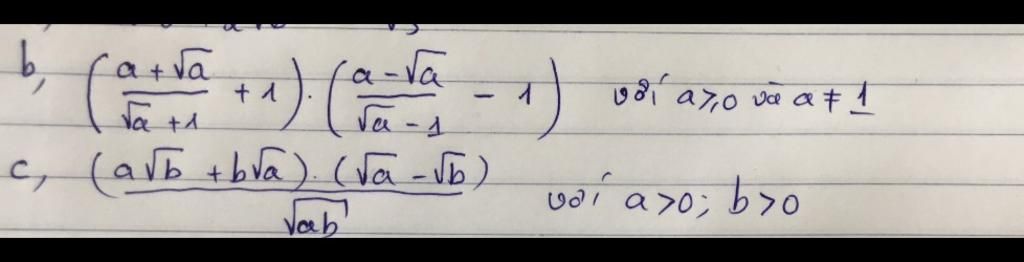 b, ((a + √a)/(√a + 1) + 1) . ((a - √a)/(√a - 1) - 1) với a ≥ 0 và a ≠ 1
c, ((a√b + b√a) . (√a - √b))/√ab với a > 0; b > 0